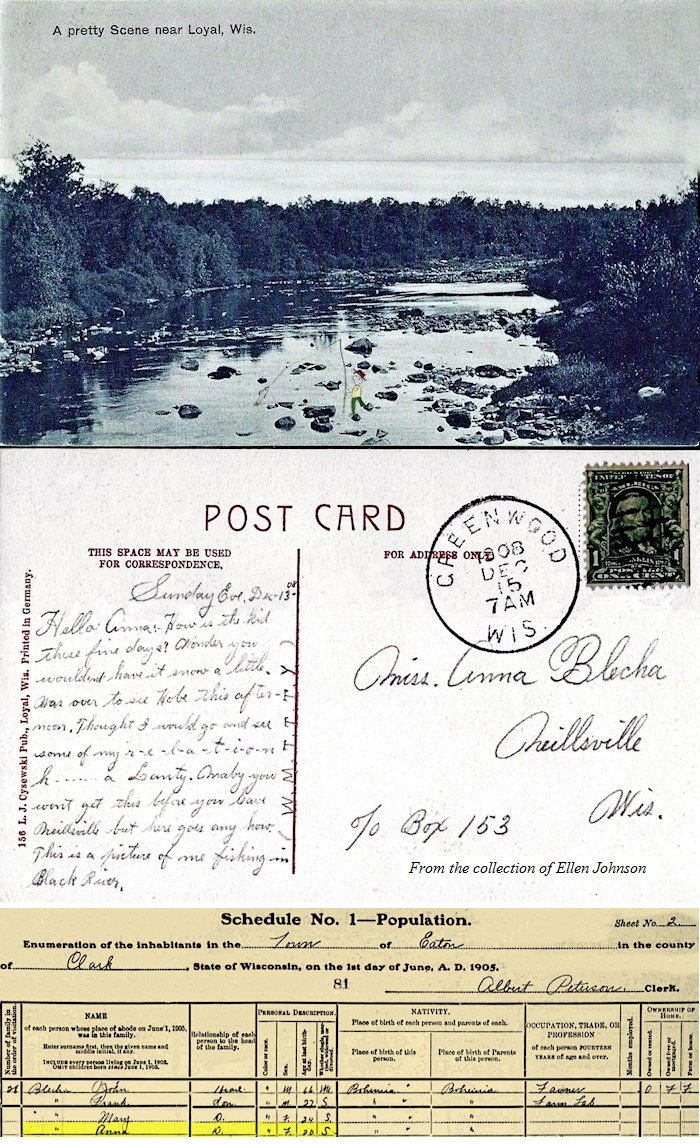 A pretty Scene near Loyal, Wis.
POST CARD
THIS SPACE MAY BE USED
FOR CORRESPONDENCE.
FOR ADDRESS ONLY.
156 L. J. Cysewski Pub., Loyal, Wis. Printed in Germany.
GREENWOOD
1908
DEC
15
7AM
WIS.
UNITED STATES OF AMERICA
FRANKLIN
1 ONE CENT 1
Sunday Eve, Dec-13-08
Hello Anna:- How is the kid
these fine days? Wonder you
wouldent have it snow a little.
Was over to see Hobe this after-
noon. Thought I would go and see
some of my r-e-l-a-t-i-o-n
h------a Lanty. Maby you
wont get this before you leave
Neillsville but here goes any how.
This is a picture of me fishing in
Black River.
W.M.T.T.Y.
Miss. Anna Blecha
Neillsville
Wis.
c/o Box 153
From the collection of Ellen Johnson
Schedule No. 1—Population.
Sheet No. 2
Enumeration of the inhabitants in the Town of Eaton in the county
of Clark, State of Wisconsin, on the 1st day of June, A. D. 1905.
81
Albert Peterson, Clerk.
Number of family in the order of visitation.
NAME
of each person whose place of abode on June 1, 1905,
was in this family.
Enter surname first, then the given name and
middle initial, if any.
INCLUDE every person living on June 1, 1905.
OMIT children born since June 1, 1905.
Relationship of each
person to the head
of the family.
PERSONAL DESCRIPTION.
Color or race.
Sex.
Age at last birthday.
NATIVITY.
Place of birth of each person and parents of each.
Place of birth of this
person.
Place of birth of Parents
of this person.
OCCUPATION, TRADE, OR
PROFESSION
of each person FOURTEEN
YEARS of age and over.
Months employed.
OWNERSHIP OF
HOME.
Owned or rented.
Owned free or mortgaged.
Farm or house.
Blecha John Head " M 66 Bohemia Bohemia Farmer O F F
" Frank Son " M 27 S " " Farm Lab
" Mary D. " F 24 S " "
" Anna D. " F 20 S " "